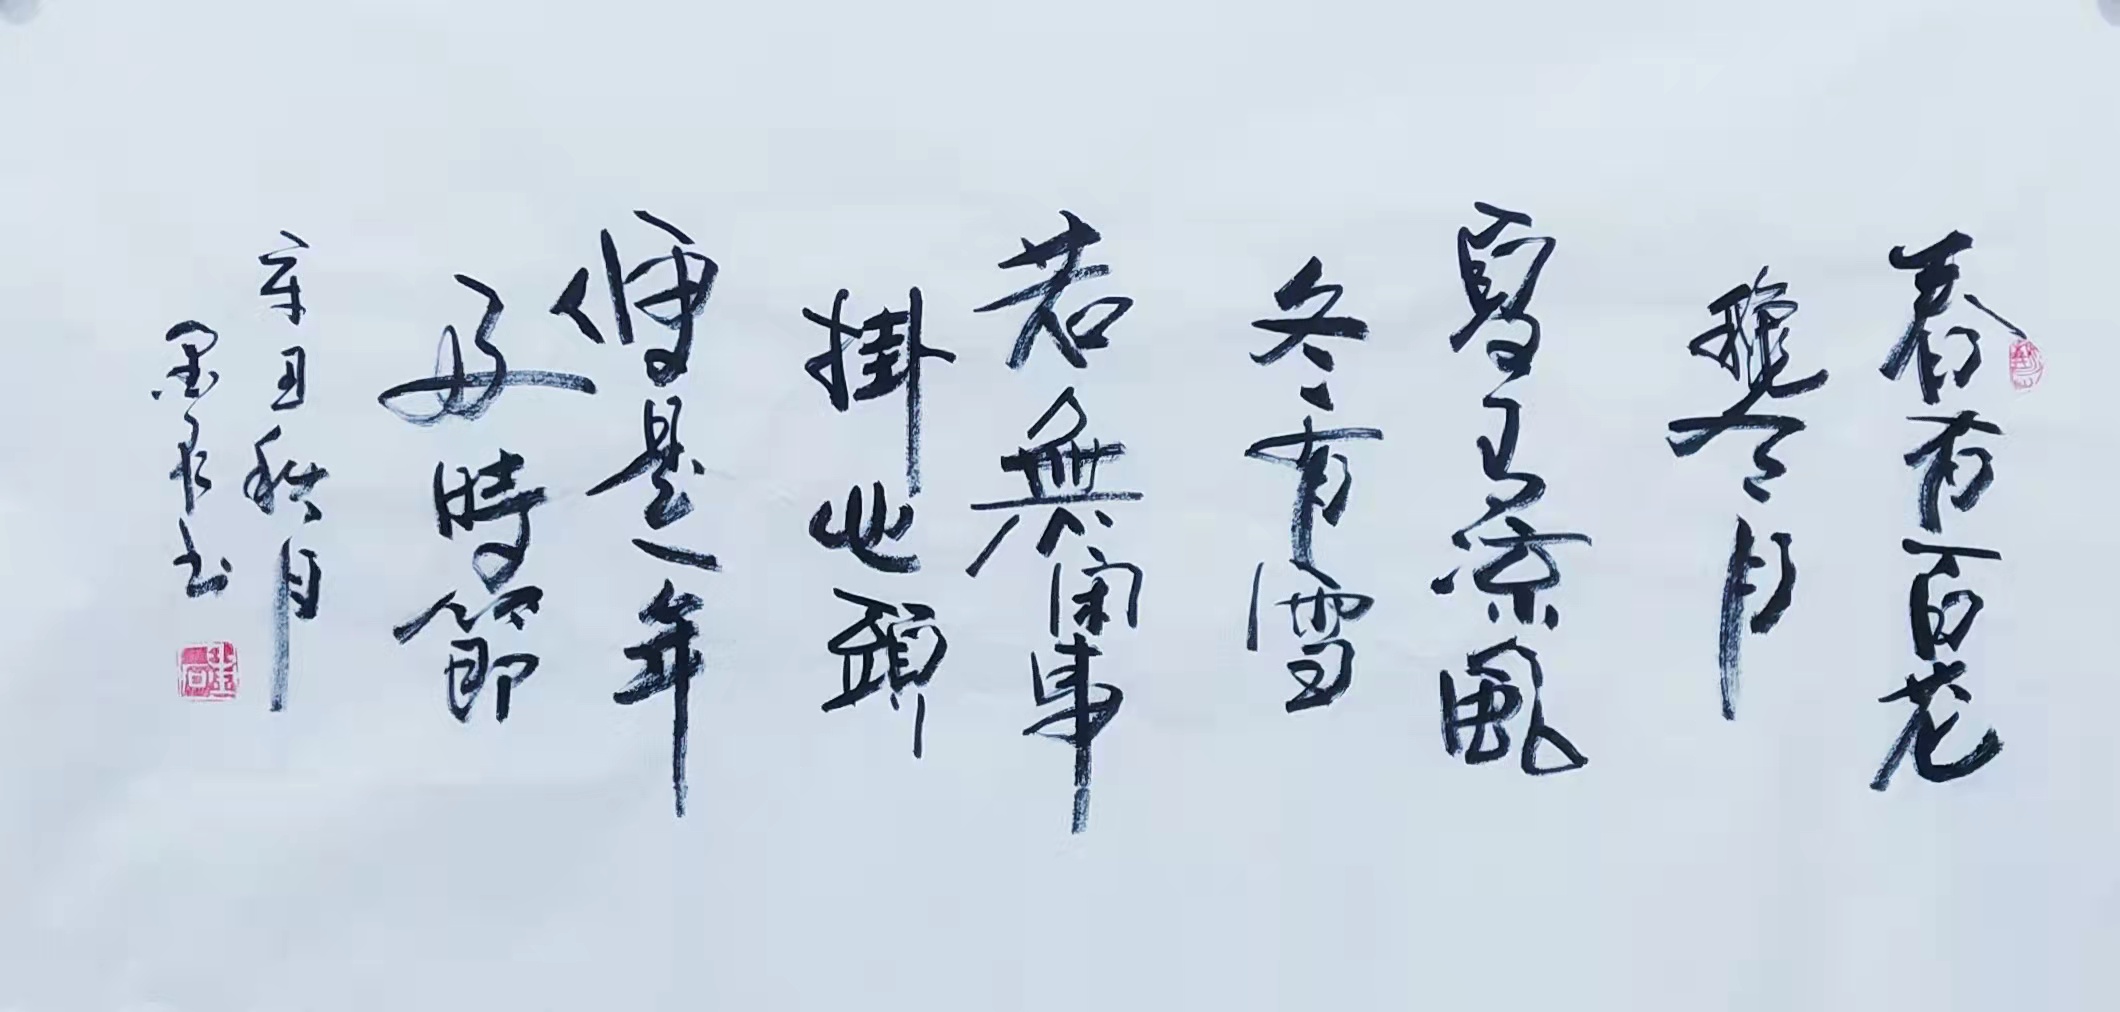 春有百花
龝有月
夏有涼風
冬有雪
若無閑事
掛心頭
便是一年
好時節
辛丑秋月
墨良书